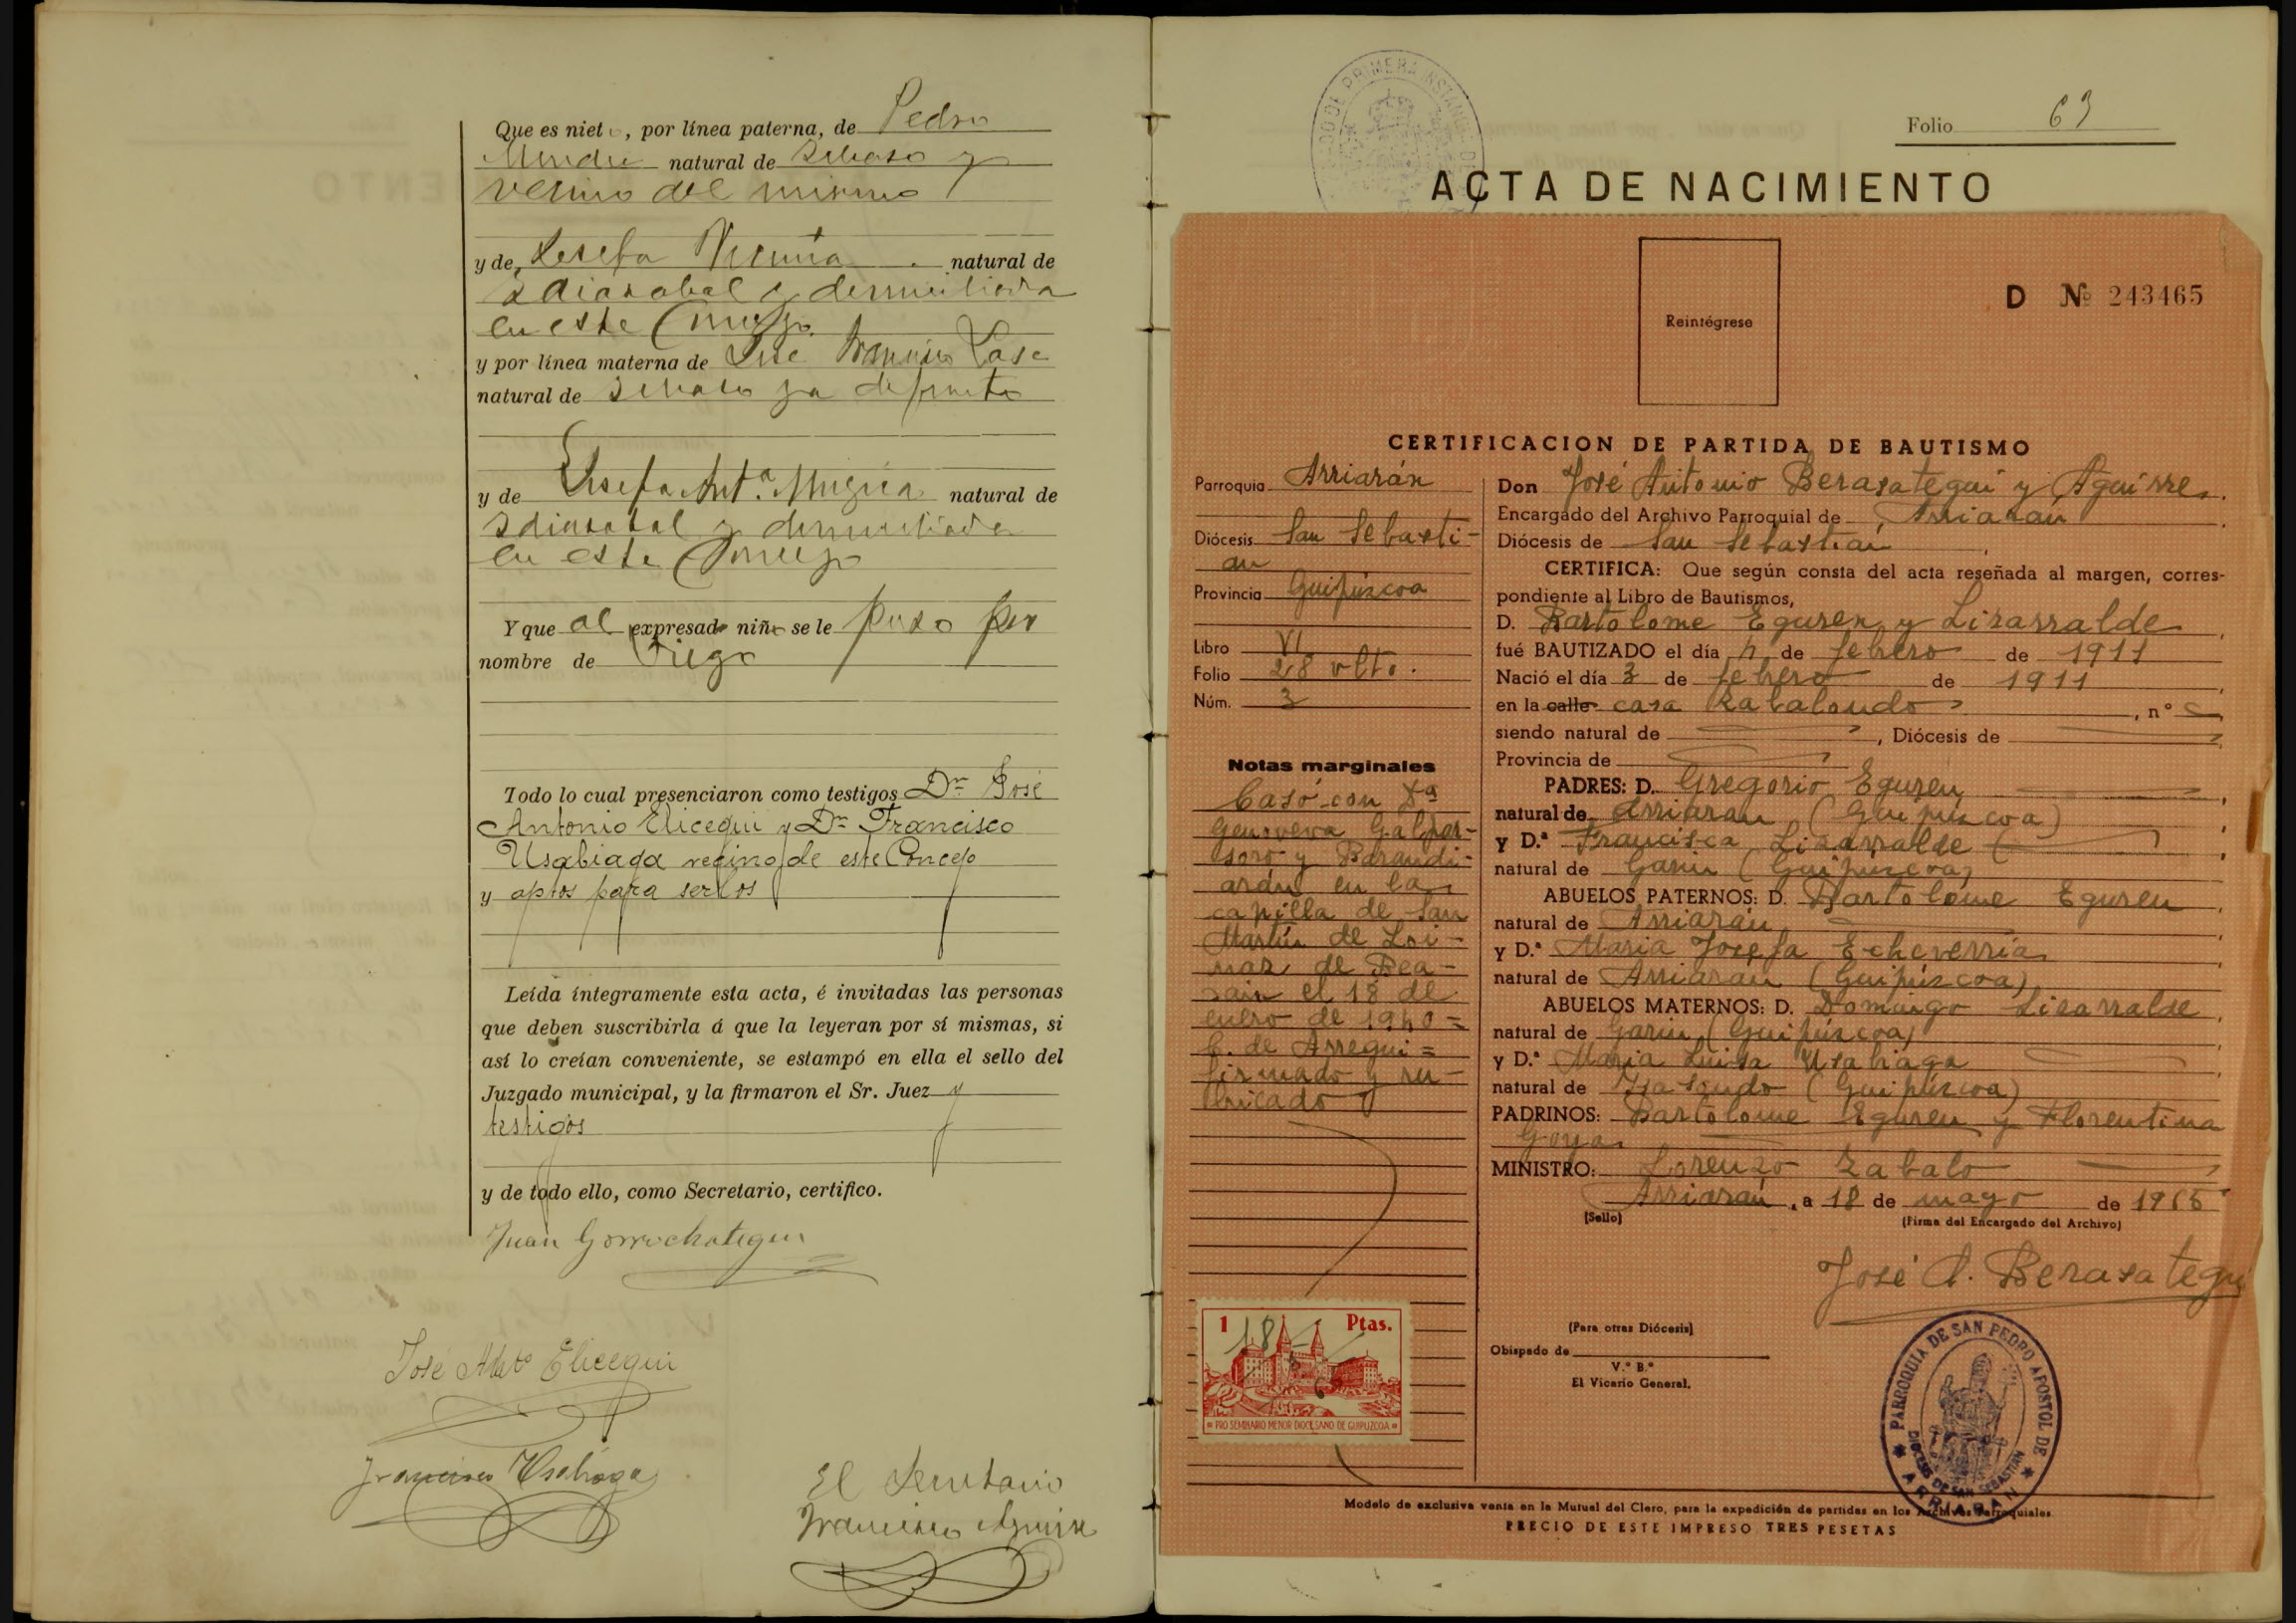 Que es nieto, por línea paterna, de Pedro
natural de
vecino del mismo
y de, Josefa Vicuña natural de
Idiazabal y domiciliada
en este Concejo
y por línea materna de José Francisco Lasa
natural de ya difunto
y de Josefa Ant.ª Mugica natural de
Idiazabal y domiciliada
en este Concejo
Y que al expresado niño se le puso por
nombre de Diego
Todo lo cual presenciaron como testigos Dn José
Antonio Elicegui y Dn Francisco
Usabiaga vecino de este Concejo
y aptos para serlos
Leída íntegramente esta acta, é invitadas las personas
que deben suscribirla á que la leyeran por sí mismas, si
así lo creían conveniente, se estampó en ella el sello del
Juzgado municipal, y la firmaron el Sr. Juez y
testigos
y de todo ello, como Secretario, certifico.
Juan Gorrochategui
José Antº Elicegui
Francisco Usabiaga
El Secretario
Francisco Aguirre
Folio 63
ACTA DE NACIMIENTO
Reintégrese
D Nº 243465
CERTIFICACION DE PARTIDA DE BAUTISMO
Parroquia Arriarán
Diócesis San Sebasti-
an
Provincia Guipúzcoa
Libro VI
Folio 28 vlto.
Núm. 3
Notas marginales
Casó con Dª
Genoveva Galpar-
soro y Barandi-
arán en la
capilla de San
Martín de Loi-
naz de Bea-
sain el 18 de
enero de 1940 =
C. de Arregui =
firmado y ru-
bricado
Don José Antonio Berasategui y Aguirre.
Encargado del Archivo Parroquial de Arriarán
Diócesis de San Sebastián
CERTIFICA: Que según consta del acta reseñada al margen, corres-
pondiente al Libro de Bautismos,
D. Bartolome Eguren y Lizarralde
fué BAUTIZADO el día 4 de febrero de 1911
Nació el día 3 de febrero de 1911
en la calle casa Zabalondo, nº
siendo natural de , Diócesis de
Provincia de
PADRES: D. Gregorio Eguren
natural de Arriaran (Guipúzcoa)
y D.ª Francisca Lizarralde
natural de Garin (Guipúzcoa)
ABUELOS PATERNOS: D. Bartolome Eguren
natural de Arriarán
y D.ª Maria Josefa Echeverría
natural de Arriarán (Guipúzcoa)
ABUELOS MATERNOS: D. Domingo Lizarralde
natural de Garin (Guipúzcoa)
y D.ª Maria Luisa Usabiaga
natural de Itasondo (Guipúzcoa)
PADRINOS: Bartolome Eguren y Florentina
Goya
MINISTRO: Lorenzo Zabalo
Arriarán, a 18 de mayo de 1965
(Sello)
(Firma del Encargado del Archivo)
José A. Berasategui
1 Ptas.
PRO SEMINARIO MENOR DIOCESANO DE GUIPUZCOA
(Para otras Diócesis)
Obispado de
V.º B.º
El Vicario General,
PARROQUIA DE SAN PEDRO APOSTOL DE
ARRIARAN
DIOCESIS DE SAN SEBASTIAN
Modelo de exclusiva venta en la Mutual del Clero, para la expedición de partidas en los Archivos Parroquiales
PRECIO DE ESTE IMPRESO TRES PESETAS